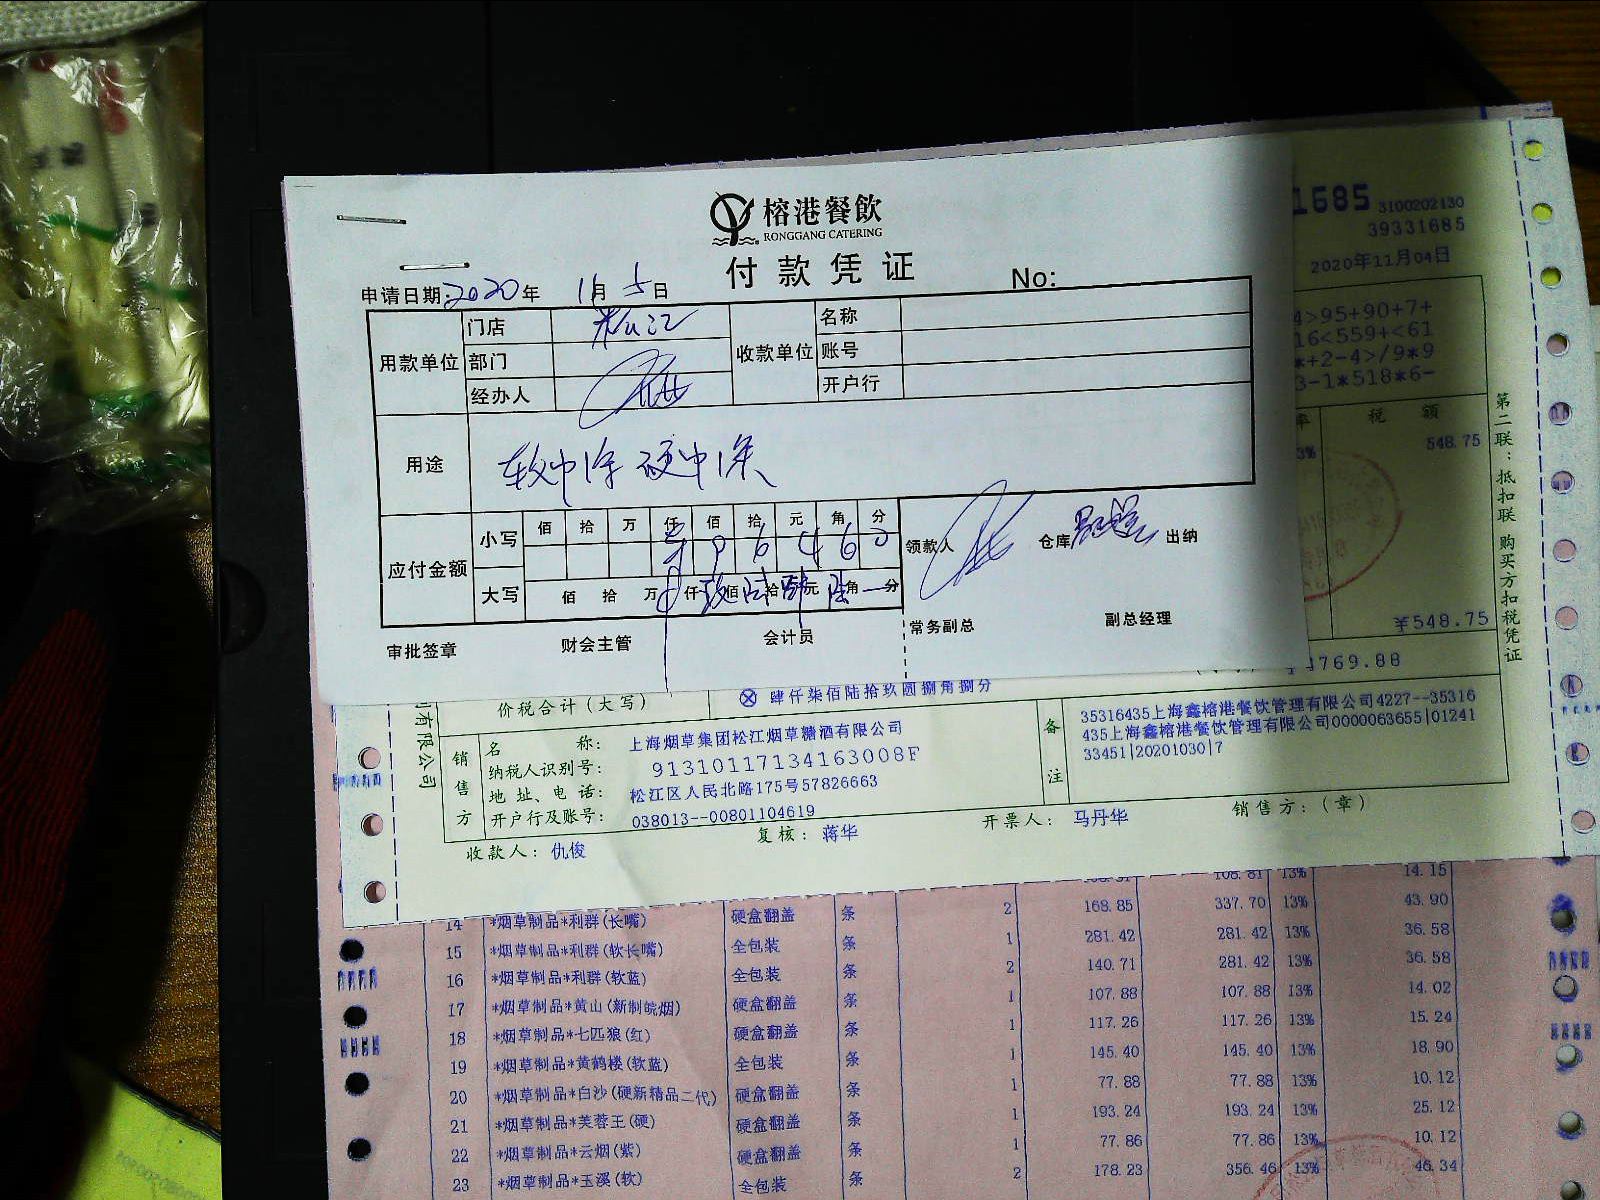 榕港餐飲
RONGGANG CATERING
付款凭证
No:
申请日期:2020年 11月 5日
用款单位 门店 松江 收款单位 名称
部门 账号
经办人 开户行
用途
应付金额 小写 佰 拾 万 仟 佰 拾 元 角 分
9 6 4 6 0
大写 佰 拾 万 仟 佰 拾 元 角 分
领款人 仓库 出纳
审批签章 财会主管 会计员 常务副总 副总经理
1685 3100202130
39331685
2020年11月04日
4>95+90+7+
16<559+<61
*+2-4>/9*9
3-1*518*6-
率 税 额
3% 548.75
¥548.75
¥4769.88
第二联：抵扣联 购买方扣税凭证
价税合计（大写） ⊗ 肆仟柒佰陆拾玖圆捌角捌分
有限公司
销售方
名 称： 上海烟草集团松江烟草糖酒有限公司
纳税人识别号： 91310117134163008F
地 址、电 话： 松江区人民北路175号57826663
开户行及账号： 038013--00801104619
备注
35316435上海鑫榕港餐饮管理有限公司4227--35316
435上海鑫榕港餐饮管理有限公司0000063655|01241
33451|20201030|7
收款人： 仇俊 复核： 蒋华 开票人： 马丹华 销售方：（章）
108.81 13% 14.15
14 *烟草制品*利群(长嘴) 硬盒翻盖 条 2 168.85 337.70 13% 43.90
15 *烟草制品*利群(软长嘴) 全包装 条 1 281.42 281.42 13% 36.58
16 *烟草制品*利群(软蓝) 全包装 条 2 140.71 281.42 13% 36.58
17 *烟草制品*黄山(新制皖烟) 硬盒翻盖 条 1 107.88 107.88 13% 14.02
18 *烟草制品*七匹狼(红) 硬盒翻盖 条 1 117.26 117.26 13% 15.24
19 *烟草制品*黄鹤楼(软蓝) 全包装 条 1 145.40 145.40 13% 18.90
20 *烟草制品*白沙(硬新精品二代) 硬盒翻盖 条 1 77.88 77.88 13% 10.12
21 *烟草制品*芙蓉王(硬) 硬盒翻盖 条 1 193.24 193.24 13% 25.12
22 *烟草制品*云烟(紫) 硬盒翻盖 条 1 77.86 77.86 13% 10.12
23 *烟草制品*玉溪(软) 全包装 条 2 178.23 356.46 13% 46.34